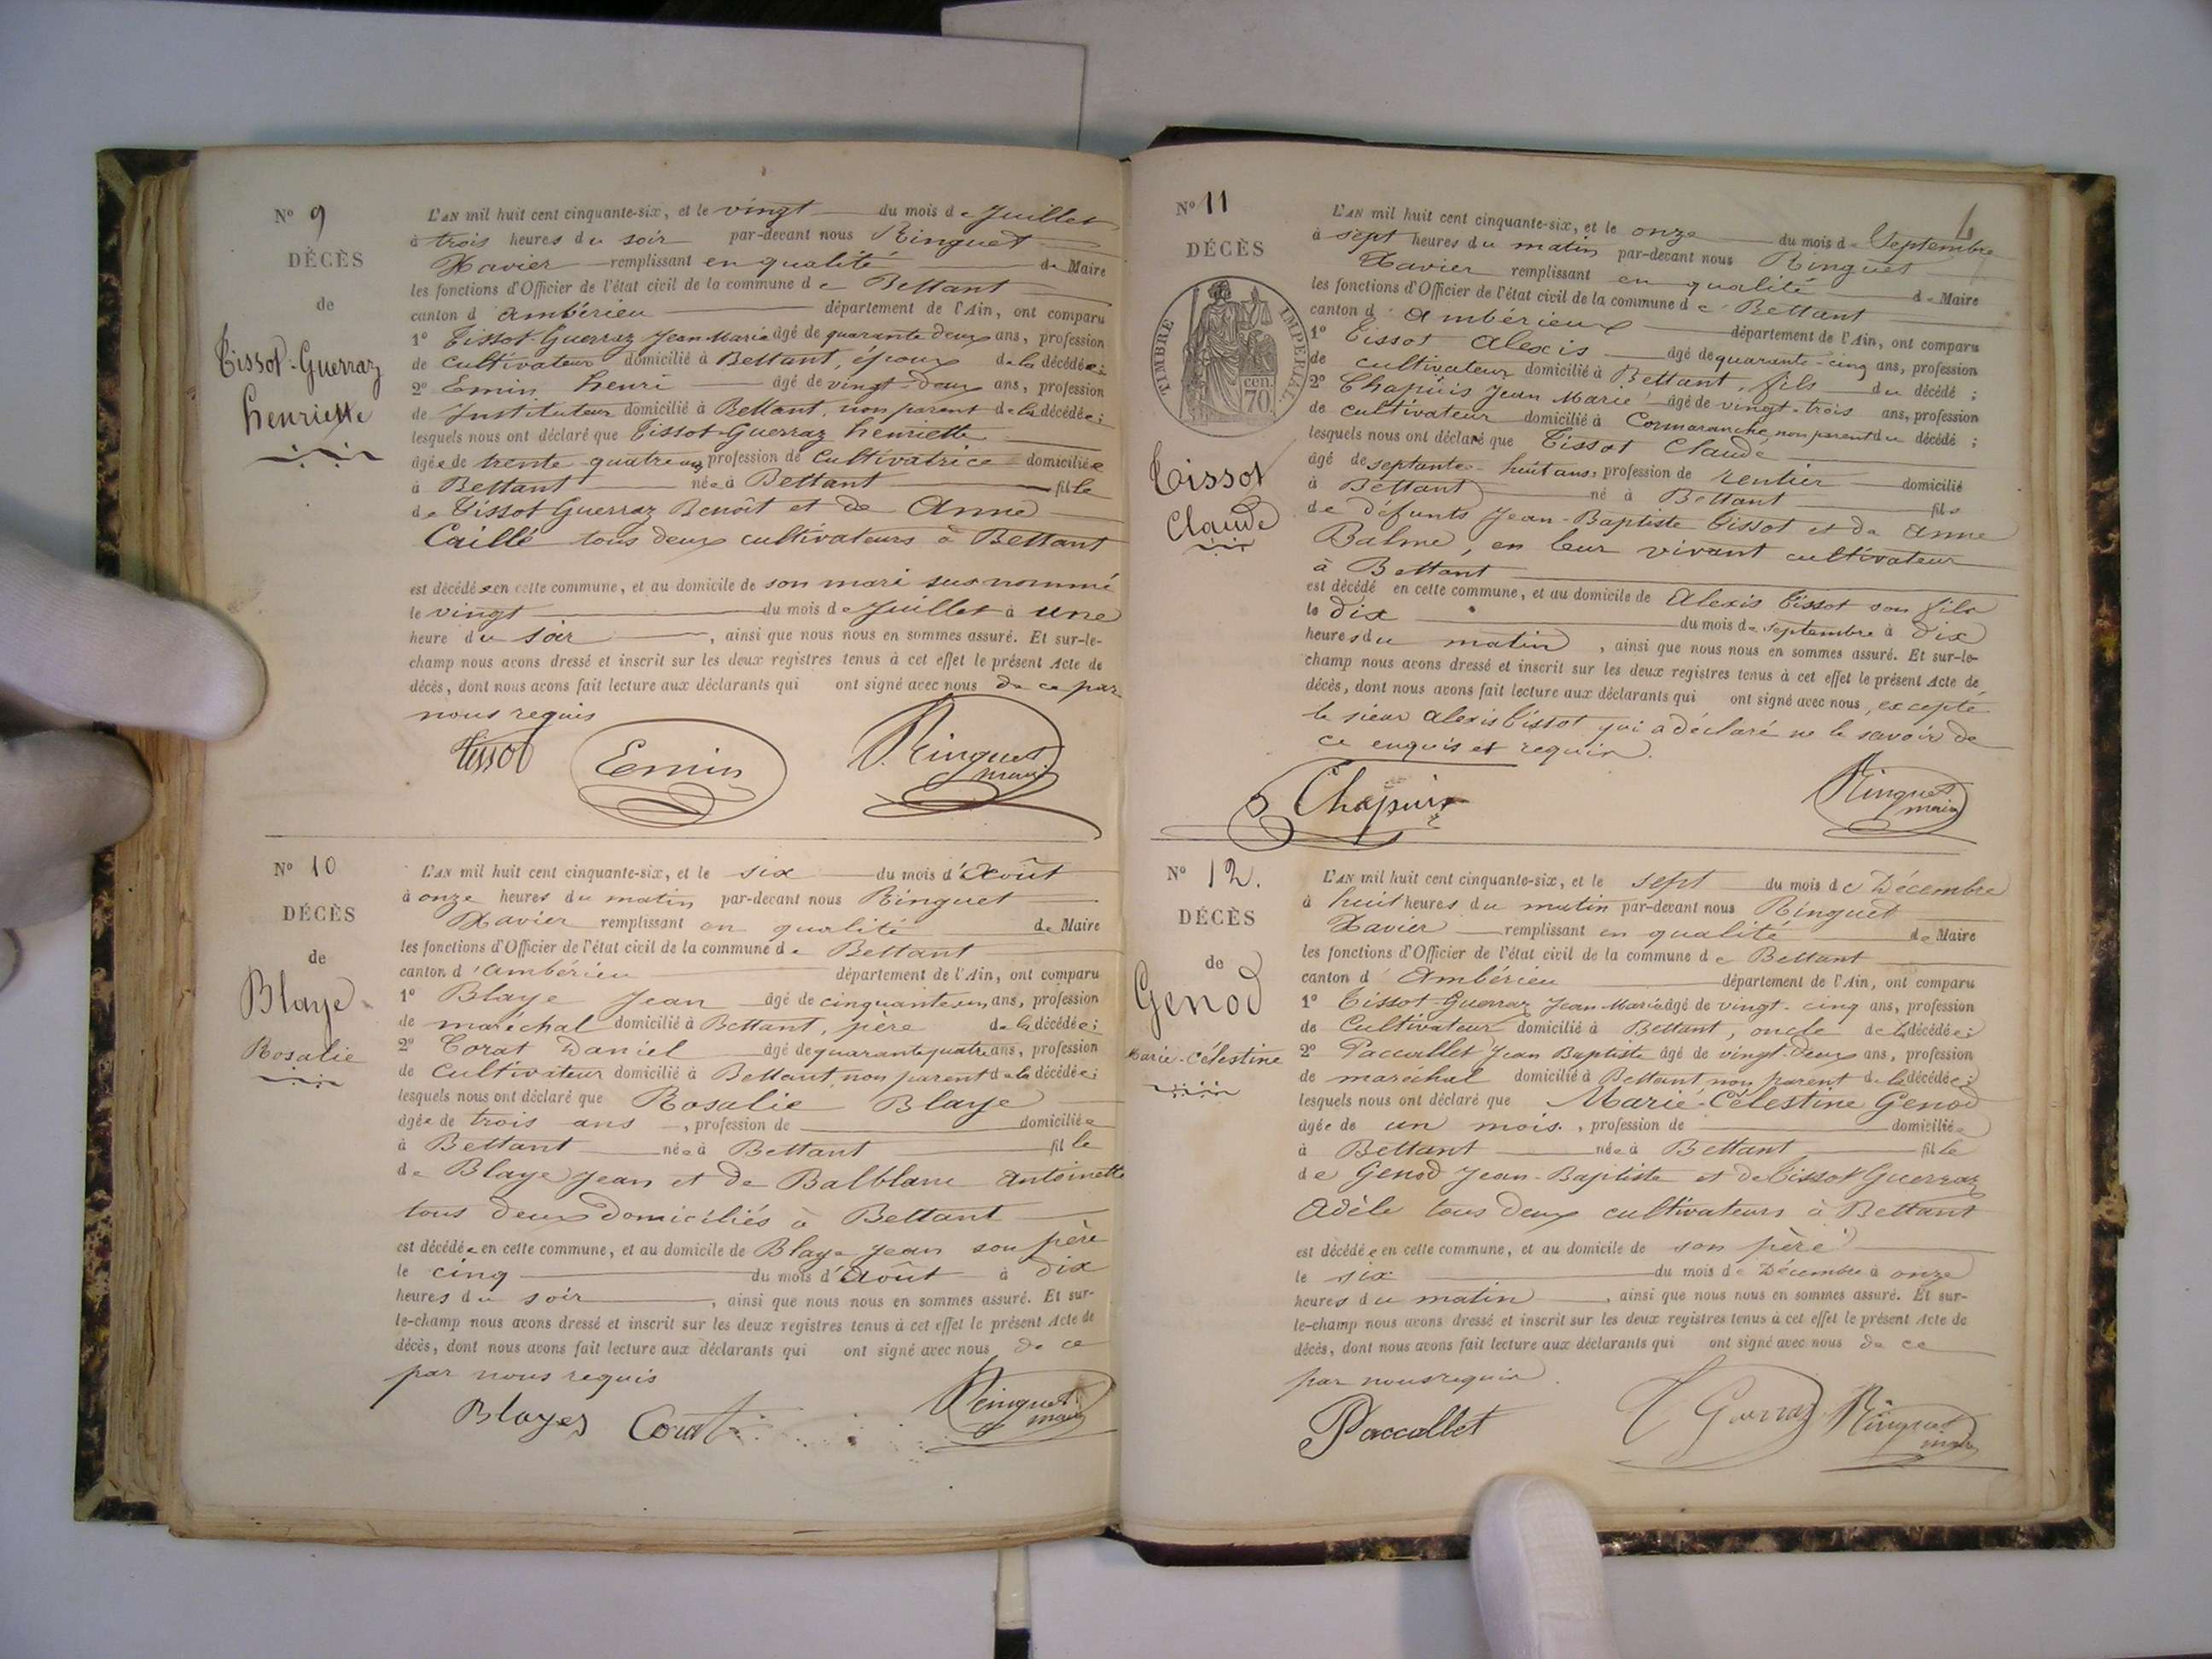 N° 9
DÉCÈS
de
Tissot-Guerraz
henriette
L'AN mil huit cent cinquante-six, et le vingt du mois de Juillet
à trois heures du soir par-devant nous Ringuet
Xavier remplissant en qualité de Maire
les fonctions d'Officier de l'état civil de la commune de Bettant
canton d'ambérieu département de l'Ain, ont comparu
1° Tissot-Guerraz Jean Marie âgé de quarante deux ans, profession
de cultivateur domicilié à Bettant, époux de la décédée;
2° Emin henri âgé de vingt-deux ans, profession
de Instituteur domicilié à Bettant, non parent de la décédée;
lesquels nous ont déclaré que Tissot-Guerraz henriette
âgée de trente quatre ans profession de Cultivatrice domiciliée
à Bettant née à Bettant fille
de Tissot Guerraz Benoît et de Anne
Caille tous deux cultivateurs à Bettant
est décédée en cette commune, et au domicile de son mari sus nommé
le vingt du mois de Juillet à une
heure du soir, ainsi que nous nous en sommes assuré. Et sur-le-
champ nous avons dressé et inscrit sur les deux registres tenus à cet effet le présent Acte de
décès, dont nous avons fait lecture aux déclarants qui ont signé avec nous de ce par
nous requis
Tissot Emin Ringuet maire
N° 10
DÉCÈS
de
Blaye
Rosalie
L'AN mil huit cent cinquante-six, et le six du mois d'Août
à onze heures du matin par-devant nous Ringuet
Xavier remplissant en qualité de Maire
les fonctions d'Officier de l'état civil de la commune de Bettant
canton d'ambérieu département de l'Ain, ont comparu
1° Blaye Jean âgé de cinquante un ans, profession
de maréchal domicilié à Bettant, père de la décédée;
2° Corat Daniel âgé de quarante quatre ans, profession
de Cultivateur domicilié à Bettant, non parent de la décédée;
lesquels nous ont déclaré que Rosalie Blaye
âgée de trois ans, profession de domiciliée
à Bettant née à Bettant fille
de Blaye Jean et de Balblanc antoinette
tous deux domiciliés à Bettant
est décédée en cette commune, et au domicile de Blaye Jean son père
le cinq du mois d'Août à dix
heures du soir, ainsi que nous nous en sommes assuré. Et sur-
le-champ nous avons dressé et inscrit sur les deux registres tenus à cet effet le présent Acte de
décès, dont nous avons fait lecture aux déclarants qui ont signé avec nous de ce
par nous requis
Blayes Corat Ringuet maire
N° 11
DÉCÈS
TIMBRE IMPERIAL
70 cen.
Tissot
Claude
L'AN mil huit cent cinquante-six, et le onze du mois de Septembre
à sept heures du matin par-devant nous Ringuet
Xavier remplissant en qualité de Maire
les fonctions d'Officier de l'état civil de la commune de Bettant
canton d'Ambérieux département de l'Ain, ont comparu
1° Tissot Alexis âgé de quarante-cinq ans, profession
de cultivateur domicilié à Bettant, fils du décédé;
2° Chapuis Jean Marie âgé de vingt-trois ans, profession
de cultivateur domicilié à Cormaranche, non parent du décédé;
lesquels nous ont déclaré que Tissot Claude
âgé de septante-huit ans, profession de rentier domicilié
à Bettant né à Bettant fils
de défunts Jean-Baptiste Tissot et de anne
Balme, en leur vivant cultivateur
à Bettant
est décédé en cette commune, et au domicile de Alexis Tissot son fils
le dix du mois de Septembre à dix
heures du matin, ainsi que nous nous en sommes assuré. Et sur-le-
champ nous avons dressé et inscrit sur les deux registres tenus à cet effet le présent Acte de
décès, dont nous avons fait lecture aux déclarants qui ont signé avec nous, excepté
le sieur Alexis Tissot qui a déclaré ne le savoir de
ce enquis et requis.
Chapuis Ringuet maire
N° 12.
DÉCÈS
de
Genod
Marie-Célestine
L'AN mil huit cent cinquante-six, et le sept du mois de Décembre
à huit heures du matin par-devant nous Ringuet
Xavier remplissant en qualité de Maire
les fonctions d'Officier de l'état civil de la commune de Bettant
canton d'Ambérieu département de l'Ain, ont comparu
1° Tissot-Guerraz Jean Marie âgé de vingt-cinq ans, profession
de Cultivateur domicilié à Bettant, oncle de la décédée;
2° Paccallet Jean Baptiste âgé de vingt-deux ans, profession
de maréchal domicilié à Bettant non parent de la décédée;
lesquels nous ont déclaré que Marie-Célestine Genod
âgée de un mois, profession de domiciliée
à Bettant née à Bettant fille
de Genod Jean-Baptiste et de Tissot Guerraz
Adèle tous deux cultivateurs à Bettant
est décédée en cette commune, et au domicile de son père
le six du mois de Décembre à onze
heures du matin, ainsi que nous nous en sommes assuré. Et sur-
le-champ nous avons dressé et inscrit sur les deux registres tenus à cet effet le présent Acte de
décès, dont nous avons fait lecture aux déclarants qui ont signé avec nous de ce
par nous requis.
Paccallet T Guerraz Ringuet maire